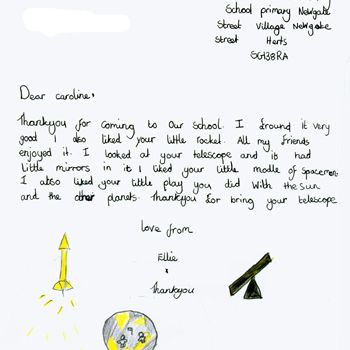 School primary Newgate
Street Village Newgate
Street Herts
SG138RA
Dear caroline,
Thankyou for coming to Our school. I fround it very
good I also liked your little rocket. All my friends
enjoyed it. I looked at your telescope and it's had
Little mirrors in it I liked your little modle of spacemen
I also liked your little play you did with the sun
and the other planets. Thankyou for bring your telescope
love from
Ellie
x
Thankyou